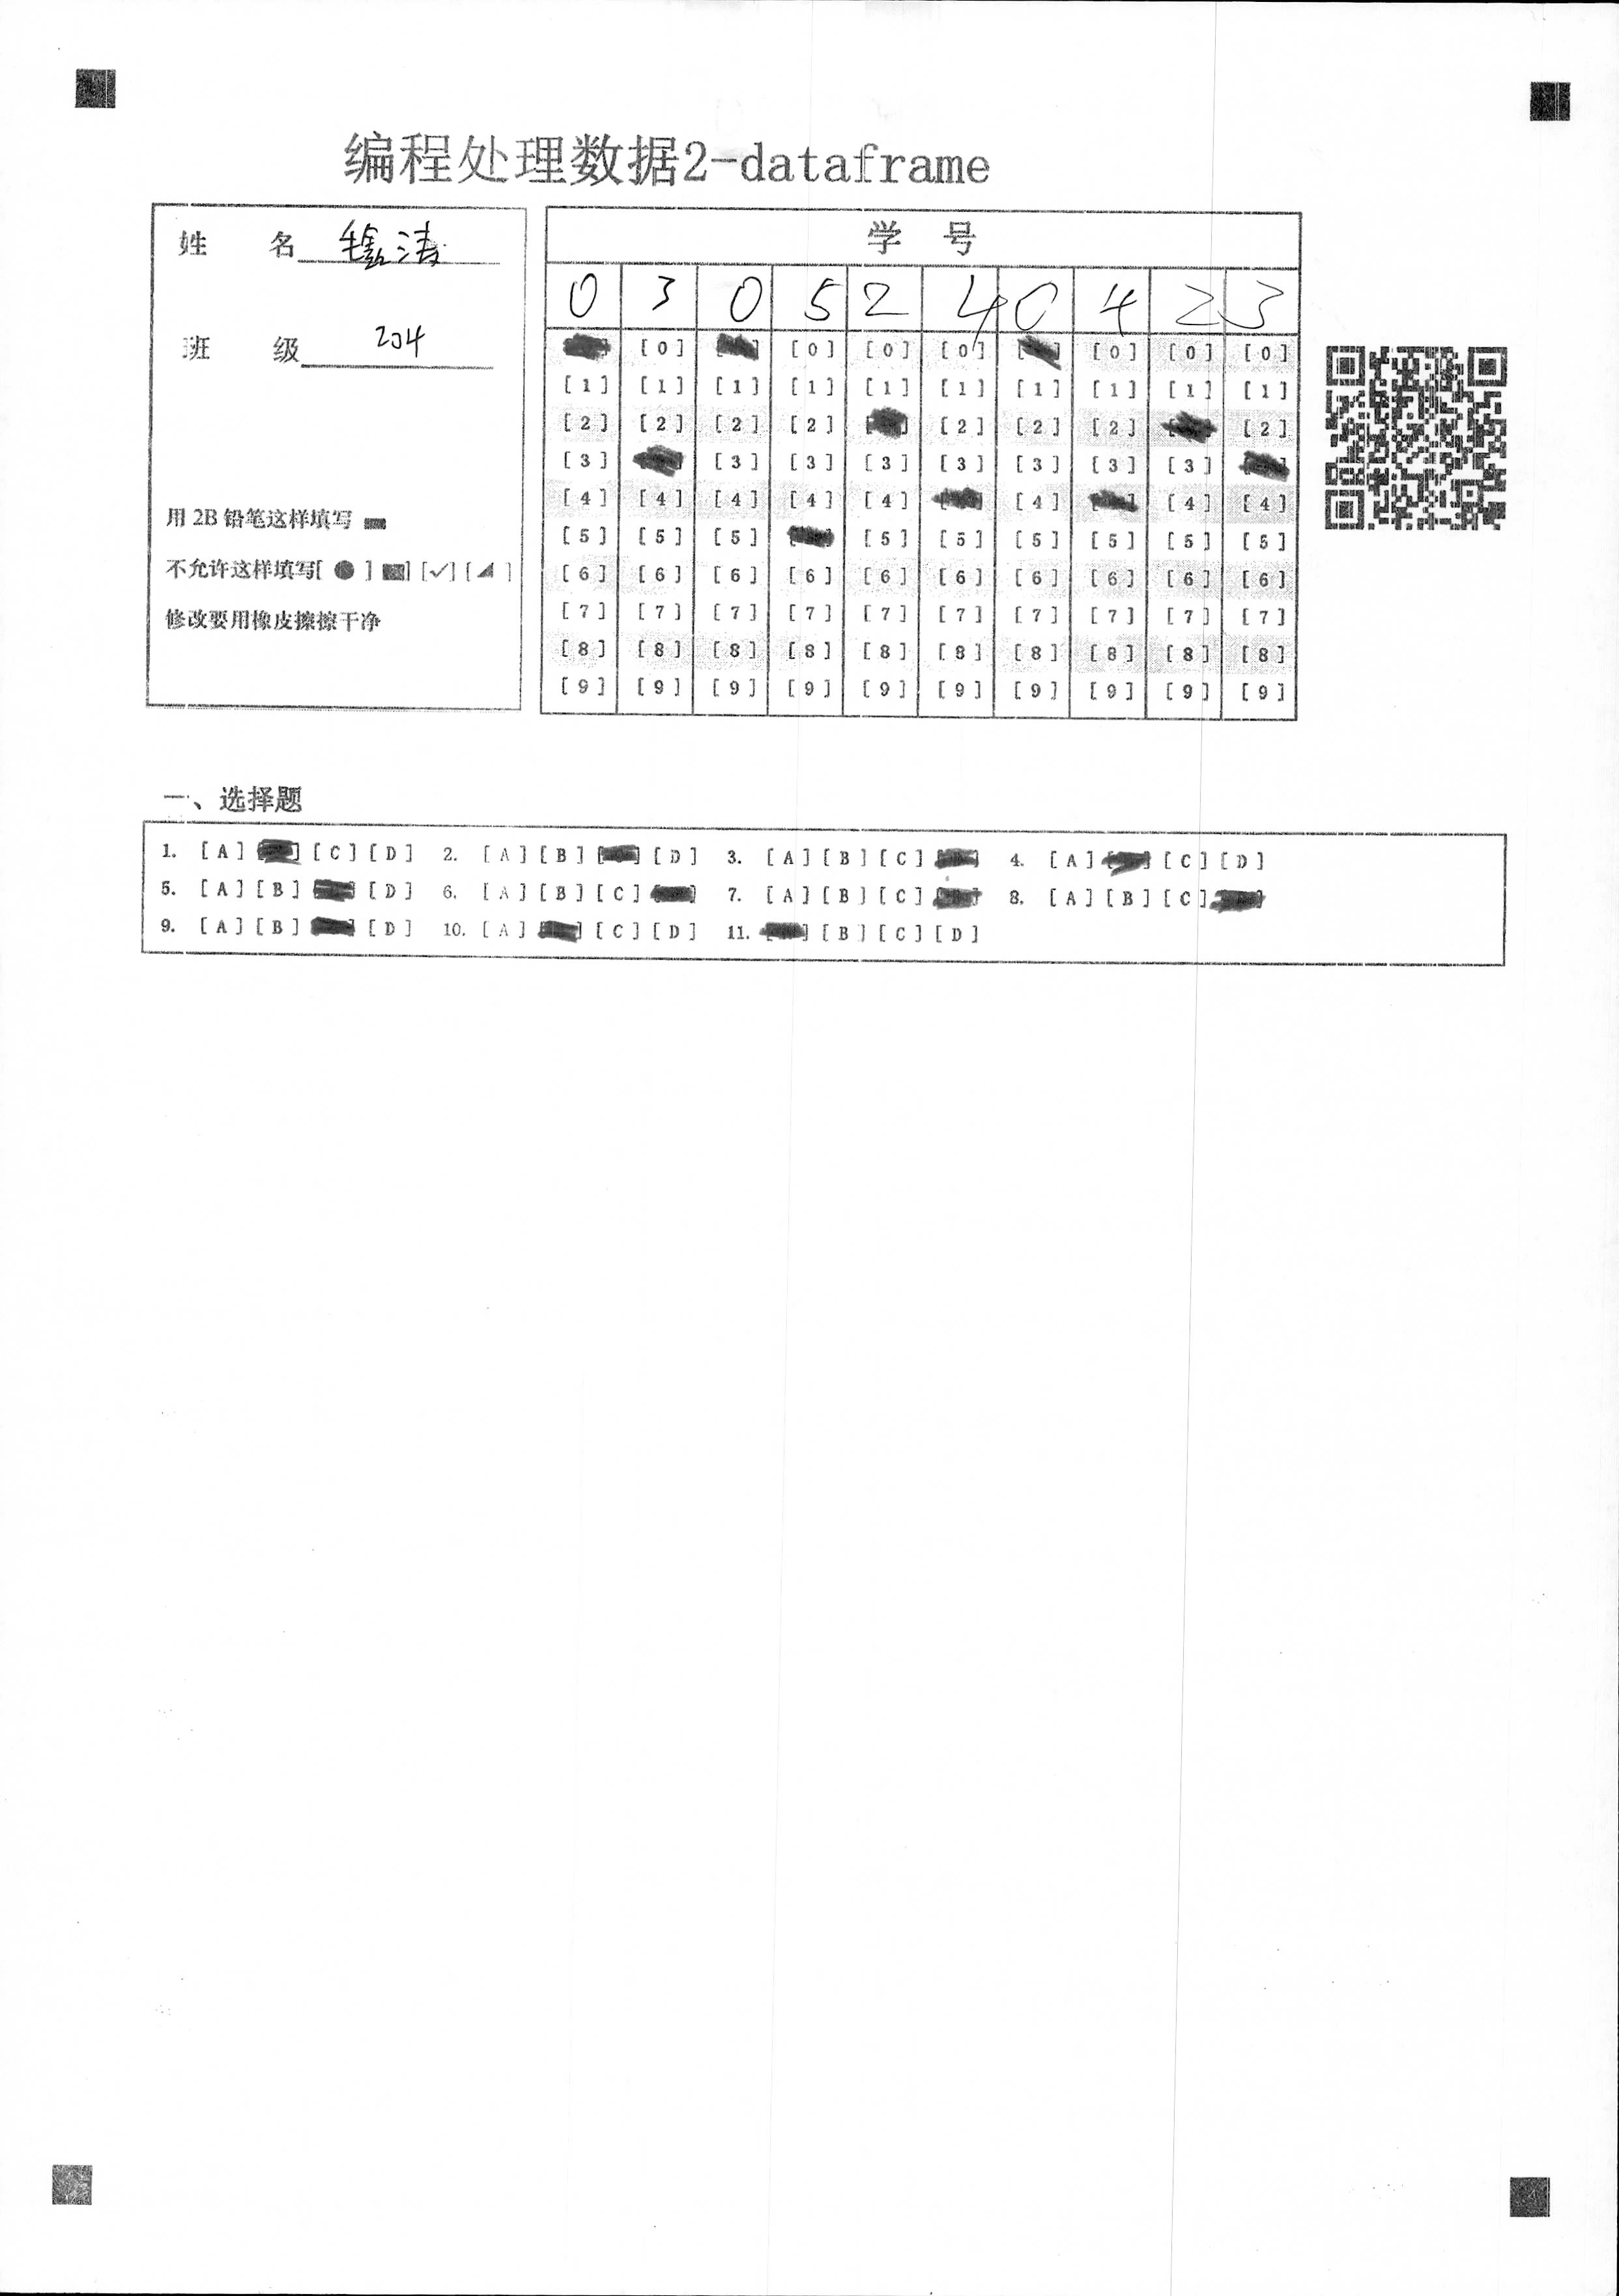 编程处理数据2-dataframe
姓 名 毛鑫涛
班 级 204
用 2B 铅笔这样填写
不允许这样填写[ ● ] [✓] [ ]
修改要用橡皮擦擦干净
学 号
0 3 0 5 2 4 0 4 2 3
[0] [0] [0] [0] [0] [0] [0]
[1] [1] [1] [1] [1] [1] [1] [1] [1] [1]
[2] [2] [2] [2] [2] [2] [2] [2]
[3] [3] [3] [3] [3] [3] [3] [3]
[4] [4] [4] [4] [4] [4] [4] [4]
[5] [5] [5] [5] [5] [5] [5] [5] [5]
[6] [6] [6] [6] [6] [6] [6] [6] [6] [6]
[7] [7] [7] [7] [7] [7] [7] [7] [7] [7]
[8] [8] [8] [8] [8] [8] [8] [8] [8] [8]
[9] [9] [9] [9] [9] [9] [9] [9] [9] [9]
一、选择题
1. [A] [C] [D] 2. [A] [B] [D] 3. [A] [B] [C] 4. [A] [C] [D]
5. [A] [B] [D] 6. [A] [B] [C] 7. [A] [B] [C] 8. [A] [B] [C]
9. [A] [B] [D] 10. [A] [C] [D] 11. [B] [C] [D]